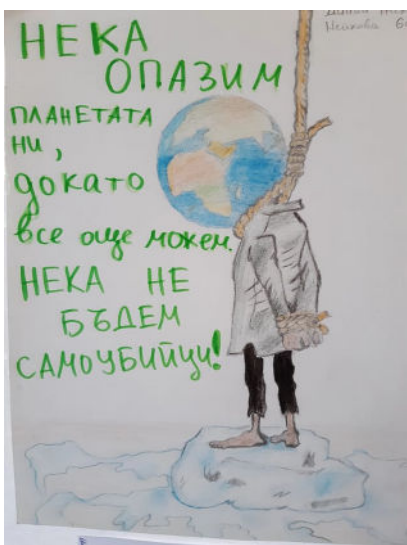 НЕКА
ОПАЗИМ
ПЛАНЕТАТА
НИ,
докато
все още можем.
НЕКА НЕ
БЪДЕМ
САМОУБИЙЦИ!